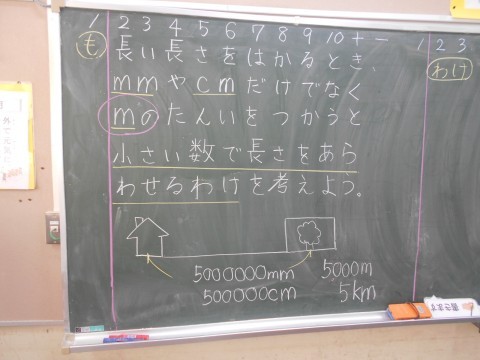 1 2 3 4 5 6 7 8 9 10 十 一 1 2 3
も
長い長さをはかるとき、
mmやcmだけでなく
mのたんいをつかうと
小さい数で長さをあら
わせるわけを考えよう。
わけ
5000000mm 5000m
500000cm 5km